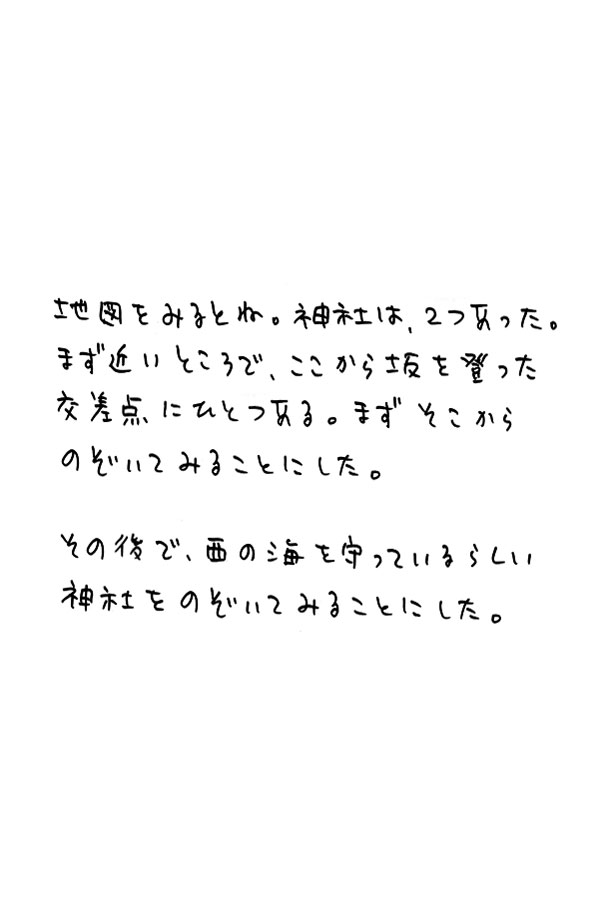 地図をみるとね。神社は、2つあった。
まず近いところで、ここから坂を登った
交差点にひとつある。まずそこから
のぞいてみることにした。
その後で、西の海を守っているらしい
神社をのぞいてみることにした。